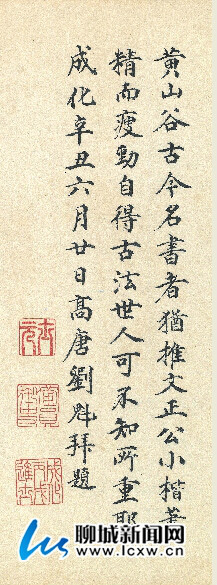 黄山谷古今名書者猶推文正公小楷
精而瘦勁自得古法世人可不知所重耶
成化辛丑六月廿日高唐劉魁拜題
聊城新闻网
www.lcxw.cn